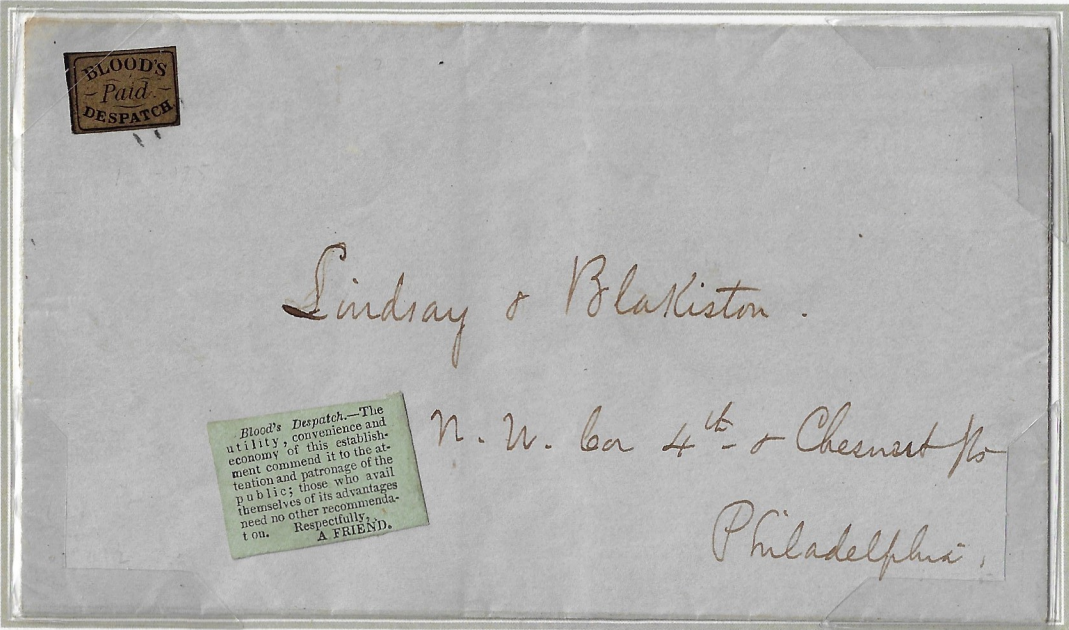 BLOOD'S
Paid
DESPATCH
Lindsay & Blakiston.
N. W. Cor 4th & Chesnut Sts
Philadelphia.
Blood's Despatch.—The
utility, convenience and
economy of this establish-
ment commend it to the at-
tention and patronage of the
public; those who avail
themselves of its advantages
need no other recommenda-
t on. Respectfully,
A FRIEND.